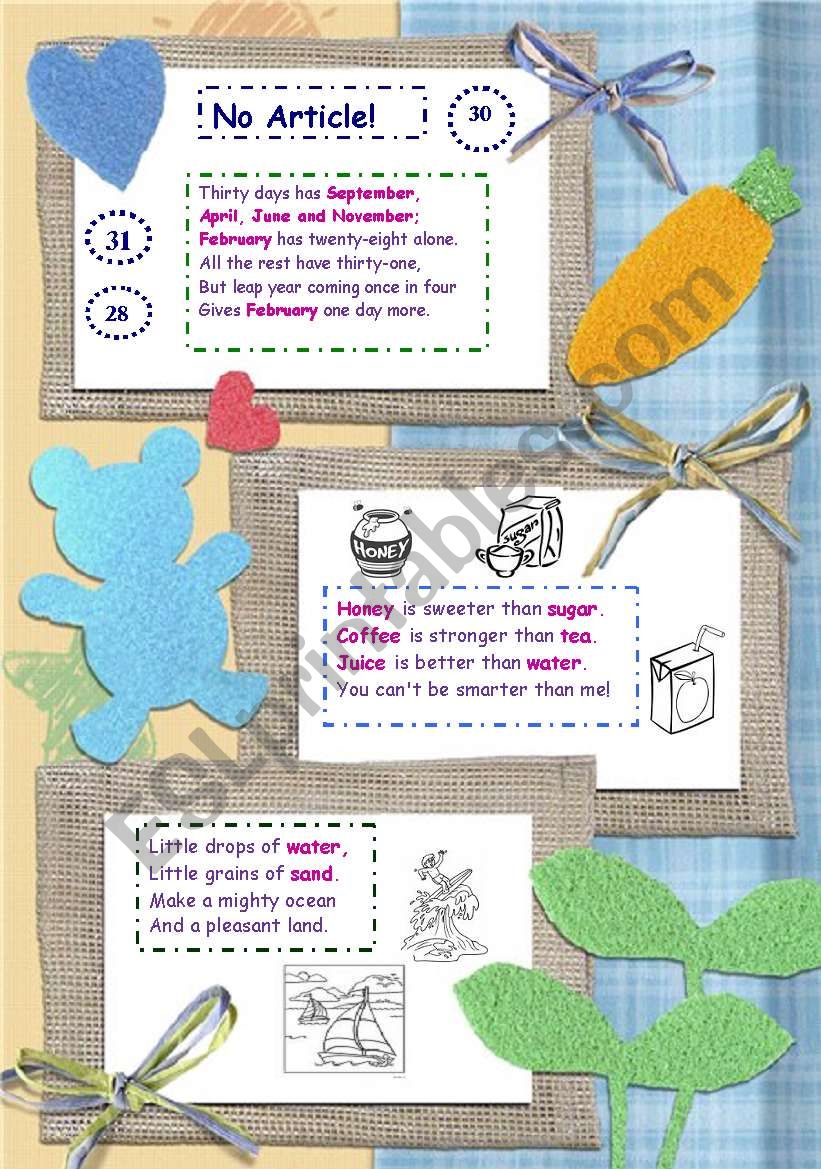 No Article!
30
Thirty days has September,
April, June and November;
31
February has twenty-eight alone.
All the rest have thirty-one,
But leap year coming once in four
28
Gives February one day more.
HONEY
sugar
Honey is sweeter than sugar.
Coffee is stronger than tea.
Juice is better than water.
You can't be smarter than me!
Little drops of water,
Little grains of sand.
Make a mighty ocean
And a pleasant land.
ESLprintables.com